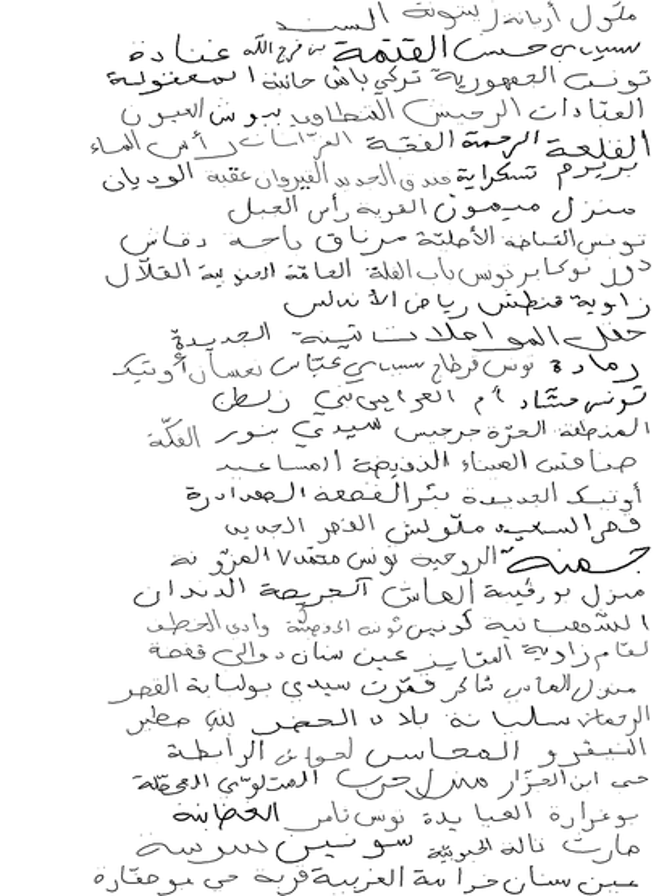 متلول أريانة زيتونة السند
سيدي حسن القتمة بن فرج الله عنادة
تونس الجمهورية تركي باش حانبة المعقولة
العتادات الرحيش القطاويد بيوش العيون
القلعة الرحمة الفقة العرّاسات رأس الماء
بريرم تسكراية فندق الجديد القيروان عقبة الوديان
منزل ميمون القرية رأس الجبل
تونس الأحليّة مرناق باجة دقاش
دوز نوكابر تونس باب القلة العامّة الجنوبية القلّال
زاوية قنطش رياض الأندلس
حفل المواصلات تينة الجديدة
رمادة تونس قرطاج سيدي عبّاس نعسان أوتيك
تونس حشّاد أم العرايس ني زلطن
المنطقة الحرّة جرجيس سيدي بنور الفكّة
صفاقس الميناء الذويبة المساعيد
أوتيك الجديدة بئر القصعة الصدادرة
قصر السعيد ملولش القصر الجديد
جمنة الروحية تونس محمد V العزونة
منزل بورقيبة الماش العريصة الدندان
الشعبانية كونين تونس وادي الخطف
لقام زاوية الفايز عين سنان دوالي قفصة
منزل العادب شاكر قمّرت سيدي بولبابة القصر
الرحمان سليانة بلاد الحضر مطير
النيفرو المحاسن لحواش الرابطة
حي ابن الجزّار منزل حرب المتلوي المحطّة
بوغرارة العبايدة تونس ثامر العطابنة
مارث تالة الجنوبيّة سونين سرسة
عين سنان خزامة الغربية قربة حي بوصفّارة